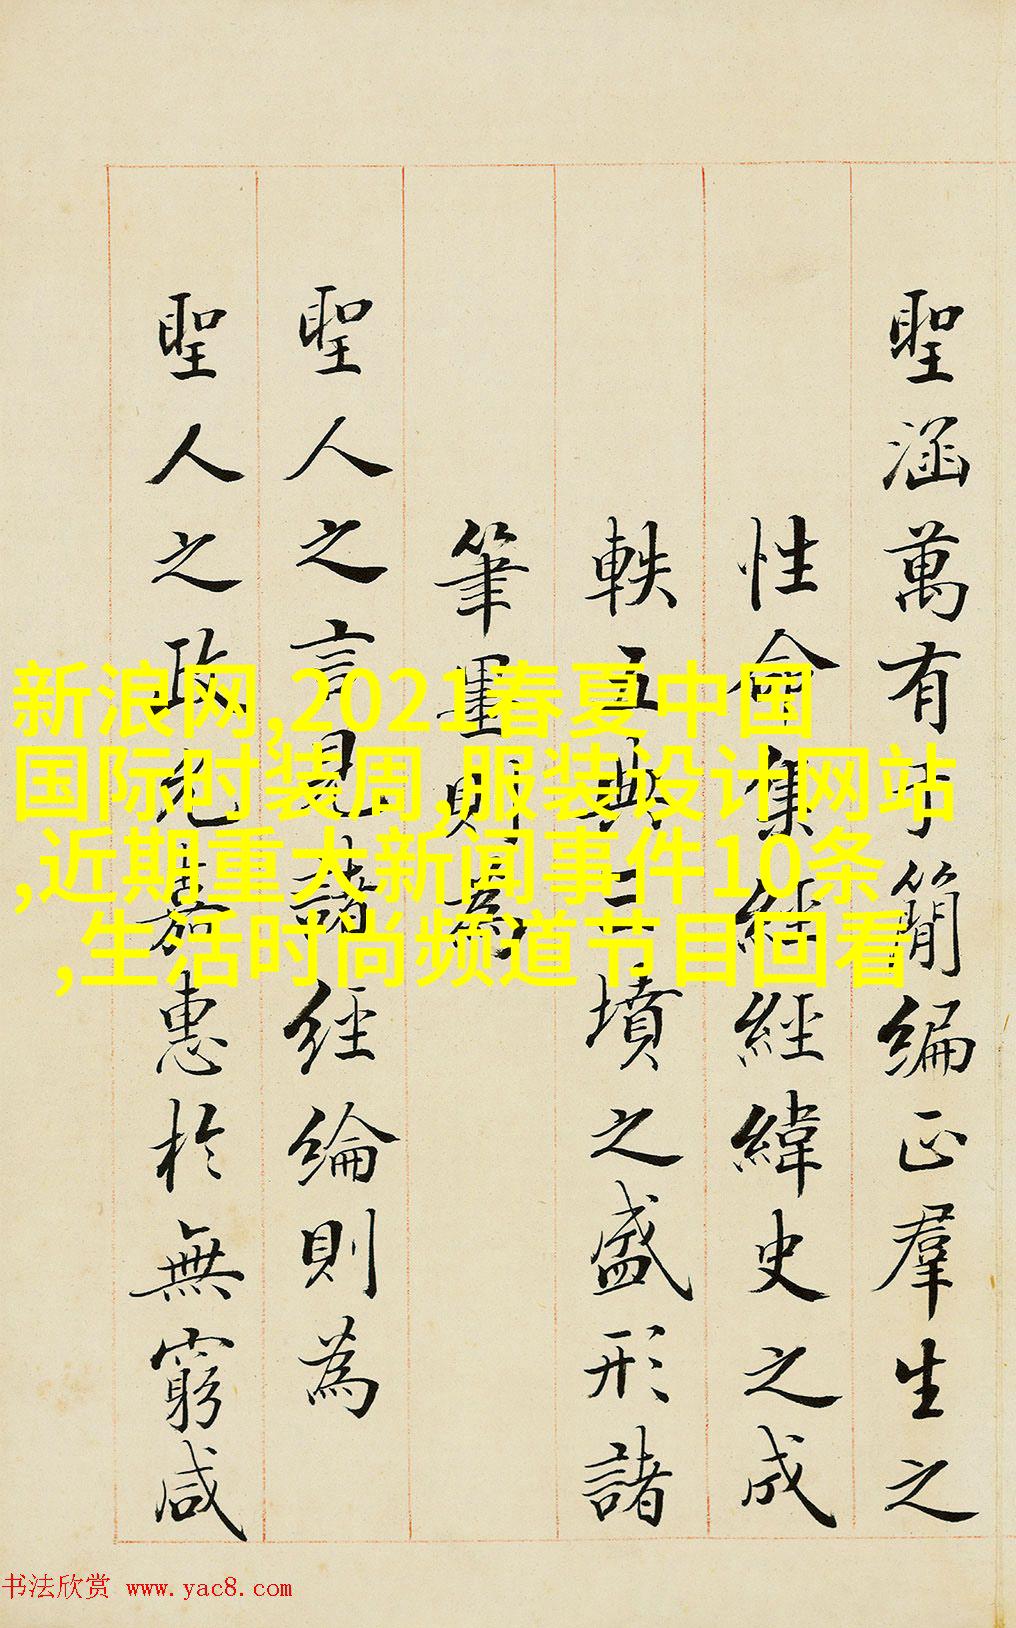 聖涵萬有于簡編正羣生之
性命集經緯史之成
軼五典三墳之盛形諸
筆墨則為
聖人之言見諸經綸則為
聖人之政嘉惠於無窮咸
新浪网,2021春夏中国
国际时装周,服装设计网站
,近期重大新闻事件10条
,生活时尚频道节目回看
书法欣赏 www.yac8.com